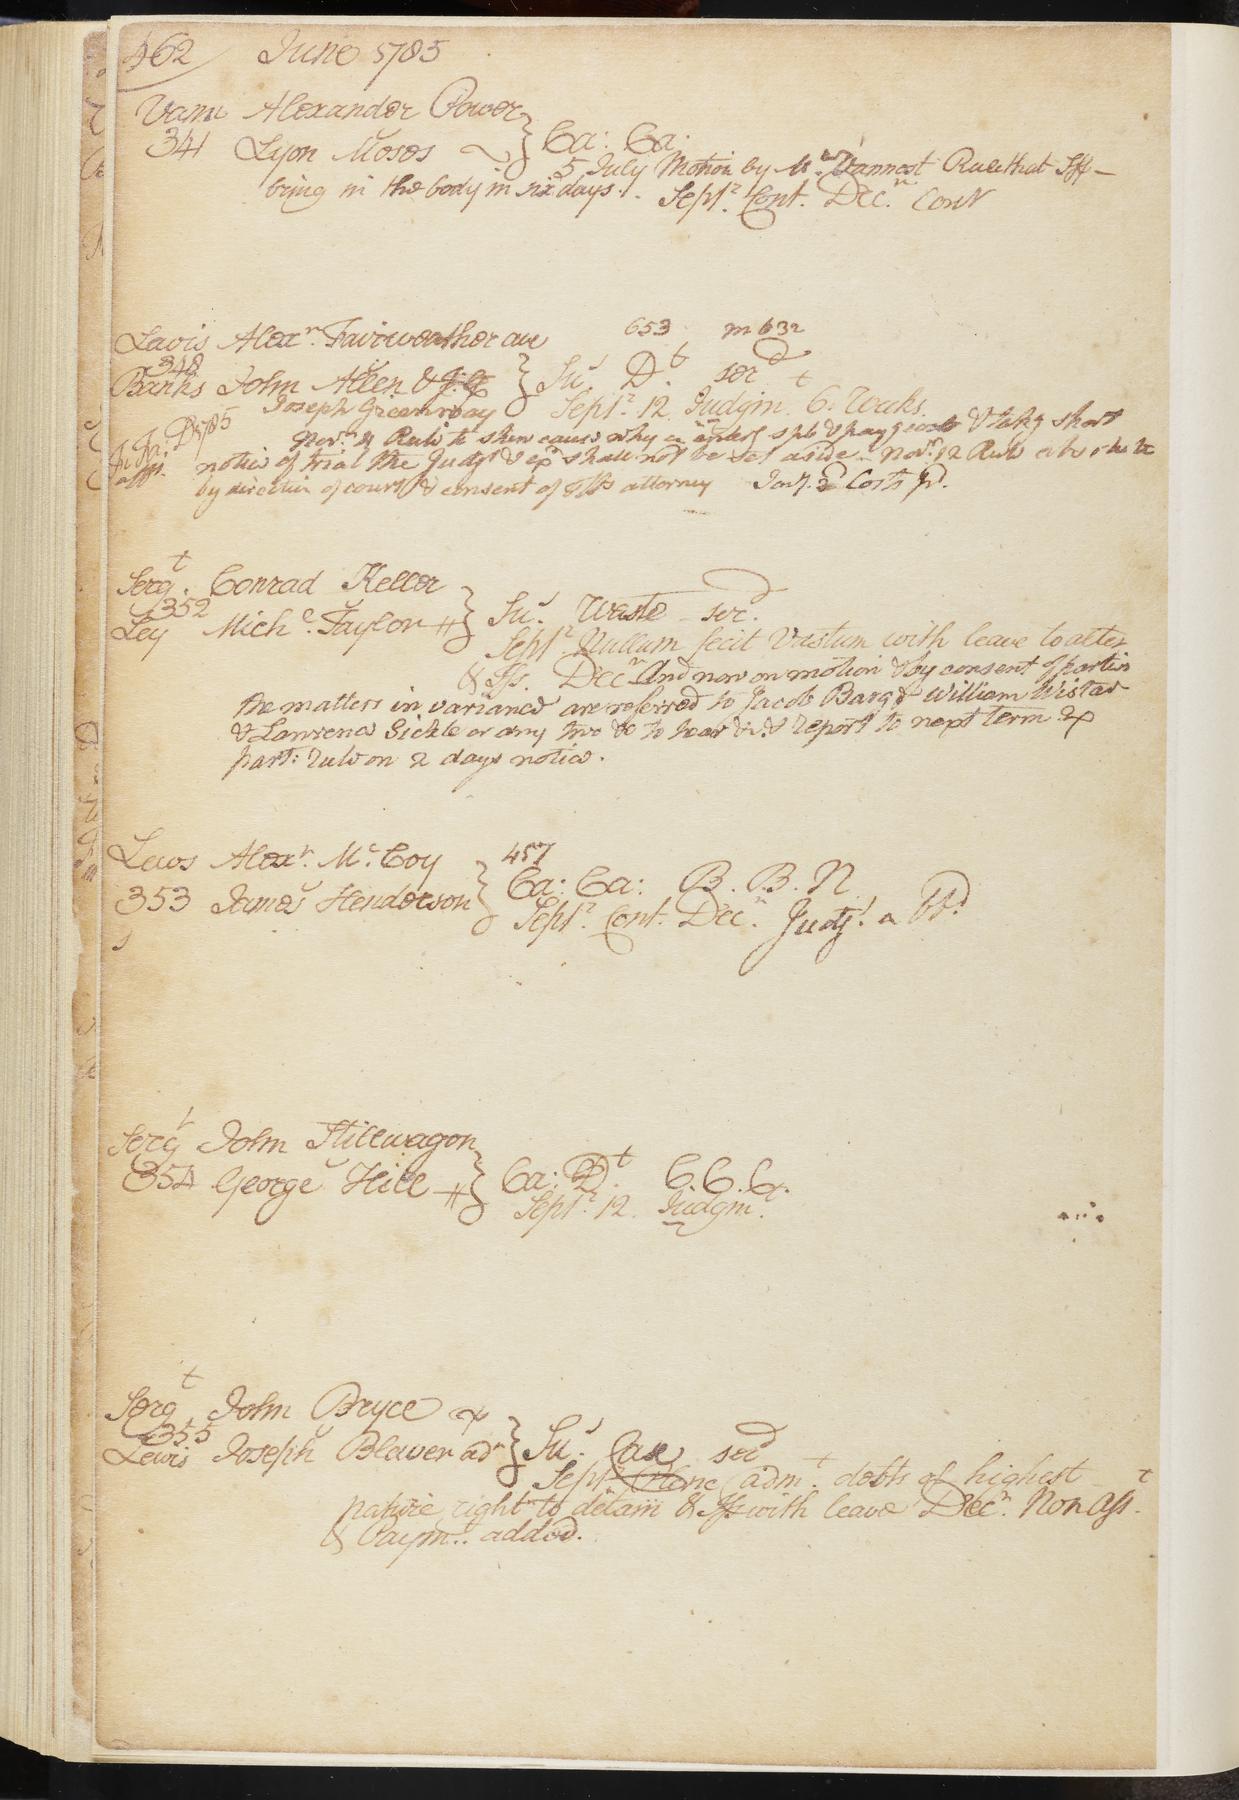 462 June 1785
Vann Alexander Power
341 Lyon Moses } Ca: Ca:
5 July Motion by Mr. Vannost Rule that Sff
bring in the body in six days. Septr. Cont. Decr. Cont
Lewis Alexr. Fairweather 653 m 632
348
Banks John Allen & } Su. Dt. serd
Joseph Greenway Septr. 12 Judgm. 6. Weeks
D 1785 Novr. 4 Rule to shew cause why on entery spl & payg costs & takg short
Fi Fa notice of trial the Judgt & exn shall not be set aside. Novr. 12 Rule
by direction of court & consent of Plfs attorney Costs pd.
Sergt. Conrad Keller
352 } Su. Waste serd.
Ley Michl. Taylor
Septr. Nullum fecit Vastum with leave to alter
& Iss. Decr. And now on motion & by consent of parties
the matters in variance are referred to Jacob Barge William Wistar
& Lawrence Sickle or any two &c to hear &c. & report to next term Ex
part: rule on 2 days notice.
Lewis Alexr. Mc. Coy 457
353 James Henderson } Ca: Ca: B. B. N
Septr. Cont. Decr. Judgt. a Bd.
Sergt John Stillwagon
354 George Hill } Ca: Dt. C. C. C.
Septr. 12. Judgm.
Sergt John Bryce
355 } Su. Case serd
Lewis Joseph Blewer adr
Septr. admt. debts of highest
nature right to detain & Iss with leave Decr. Non Asst.
& Paymt. added.